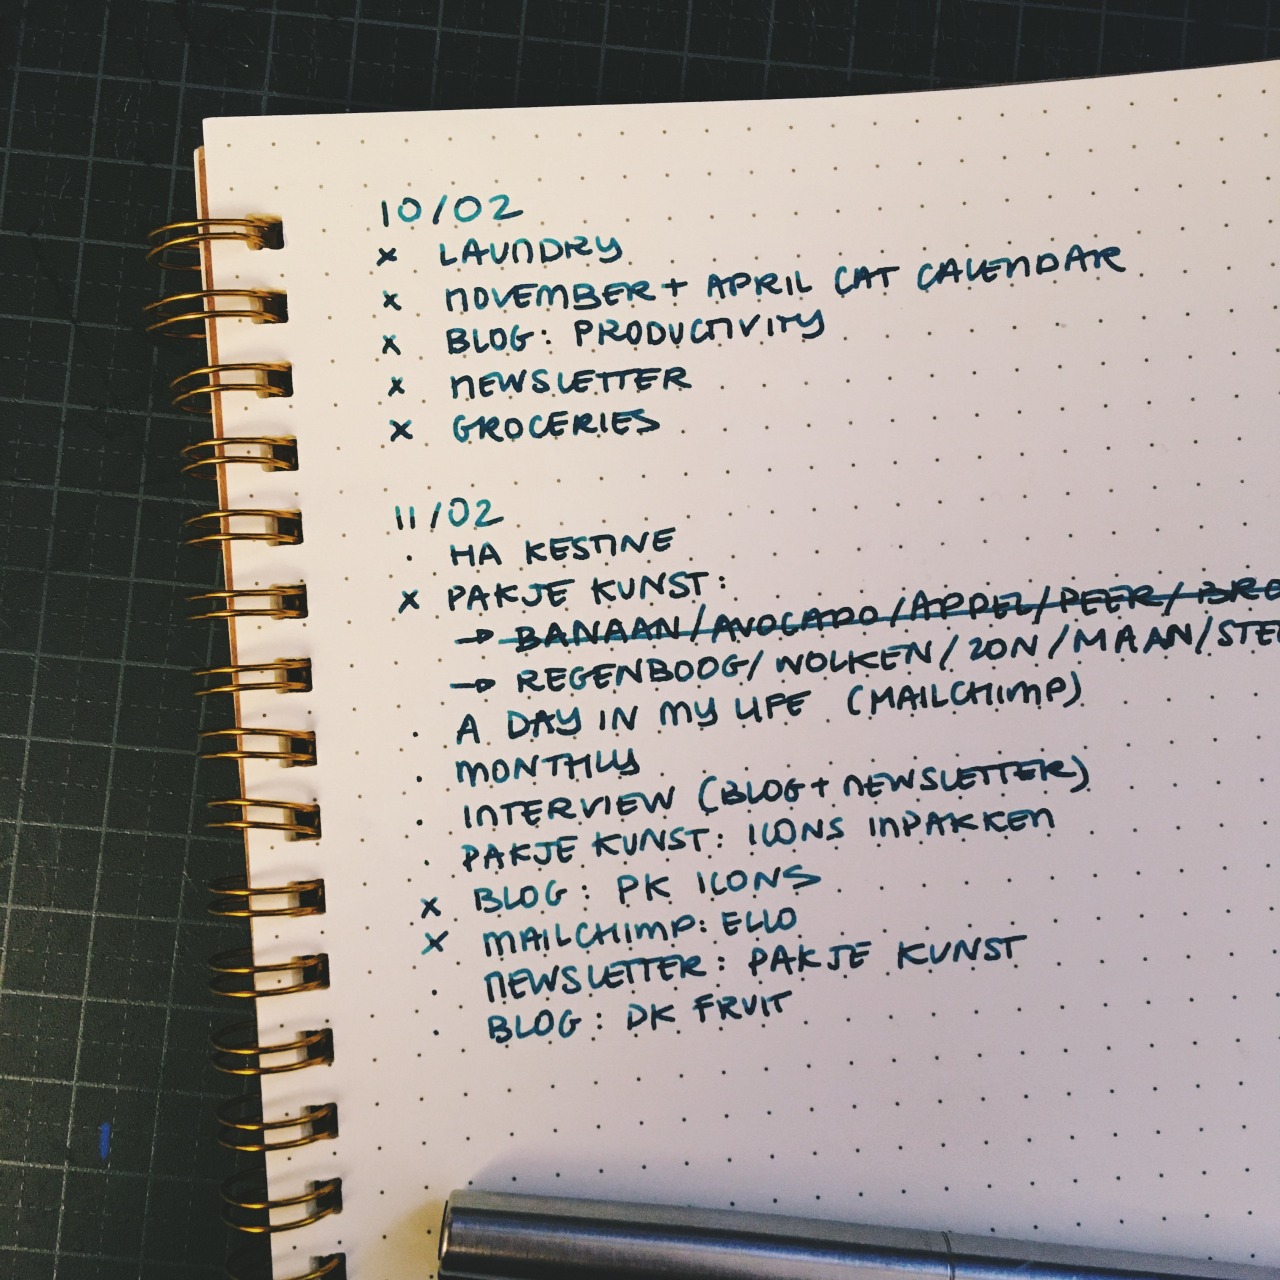 10/02
× LAUNDRY
× NOVEMBER + APRIL CAT CALENDAR
× BLOG: PRODUCTIVITY
× NEWSLETTER
× GROCERIES
11/02
· HA KESTINE
× PAKJE KUNST:
→ BANAAN/AVOCADO/APPEL/PEER/BRO
→ REGENBOOG/WOLKEN/ZON/MAAN/STE
· A DAY IN MY LIFE (MAILCHIMP)
· MONTHLY
· INTERVIEW (BLOG + NEWSLETTER)
· PAKJE KUNST: ICONS INPAKKEN
× BLOG: PK ICONS
× MAILCHIMP: ELLO
· NEWSLETTER: PAKJE KUNST
· BLOG: PK FRUIT